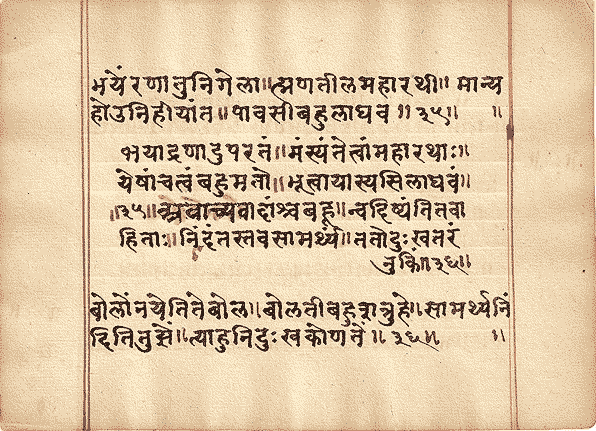 भयेंरणातुनिगेला॥ह्मणतीलमहारथी॥ मान्य
होउनिहीयांत॥पावसीबहुलाघव॥३५॥ ॥
भयाद्रणादुपरतं॥मंस्यंतेत्वांमहारथाः॥
येषांचत्वंबहुमतो॥भूत्वायास्यसिलाघवं॥
॥३५॥अवाच्यवादांश्चबहू॥न्वदिष्यंतितवा
हिताः॥निंदंतस्तवसामर्थ्यं॥ततोदुःखतरं
नुकिं॥३६॥
बोलोंनयेतितेबोल॥बोलतीबहुशत्रुहे॥सामर्थ्यनिं
दितितुझें॥त्याहुनिदुःखकोणतें॥३६॥ ॥